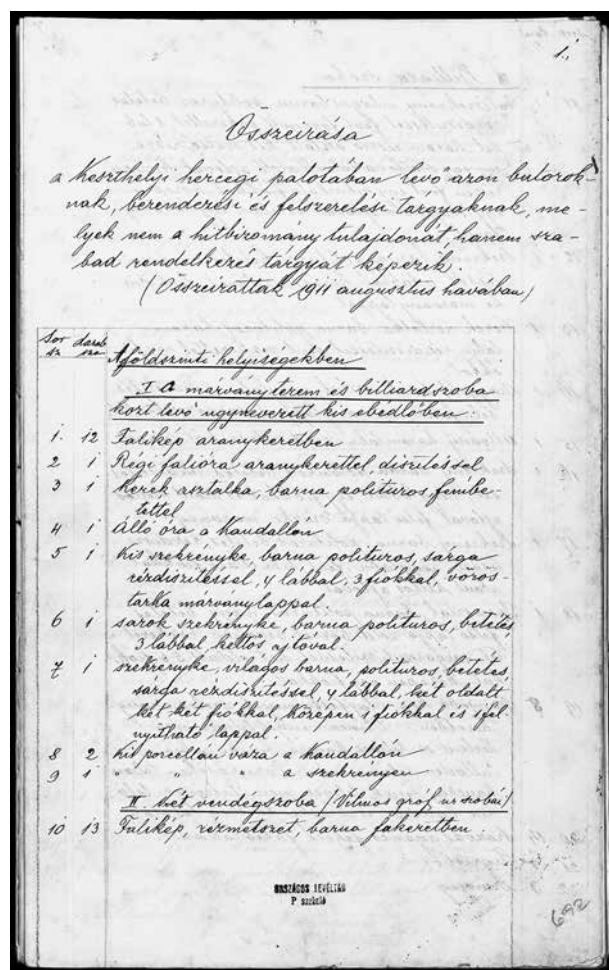 1.,
Összeirása
a Keszthelyi hercegi palotában levő azon butorok-
nak, berendezési és felszerelési tárgyaknak, me-
lyek nem a hitbizomány tulajdonát, hanem sza-
bad rendelkezés tárgyát képezik.
(Összeirattak 1911 augusztus havában)
Sor sz darab sza
A földszinti helyiségekben
I A márványterem és billiardszoba
közt levő ugynevezett kis ebédlőben.
1. 12 Falikép aranykeretben
2 1 Régi falióra, aranykerettel, diszitéssel
3 1 Kerek asztalka, barna polituros, fémbe-
tettel
4 1 Álló óra a Kandallón
5 1 Kis szekrényke, barna polituros, sárga
rézdiszitéssel, 4 lábbal, 3 fiókkal, vörös-
tarka márványlappal.
6 1 sarok szekrényke, barna polituros, betétes,
3 lábbal, kettős ajtóval.
7 1 szekrényke, világos barna, polituros, betétes,
sárga rézdiszitéssel, 4 lábbal, két oldalt
két-két fiókkal, középen 1 fiókkal és 1 fel-
nyitható lappal.
8 2 Kis porcellán váza a Kandallón
9 1 " " " a szekrényen
II. Két vendégszoba (Vilmos gróf ur szobái)
10 13 Falikép, rézmetszet, barna fakeretben
ORSZÁGOS LEVÉLTÁR
P szekció
692